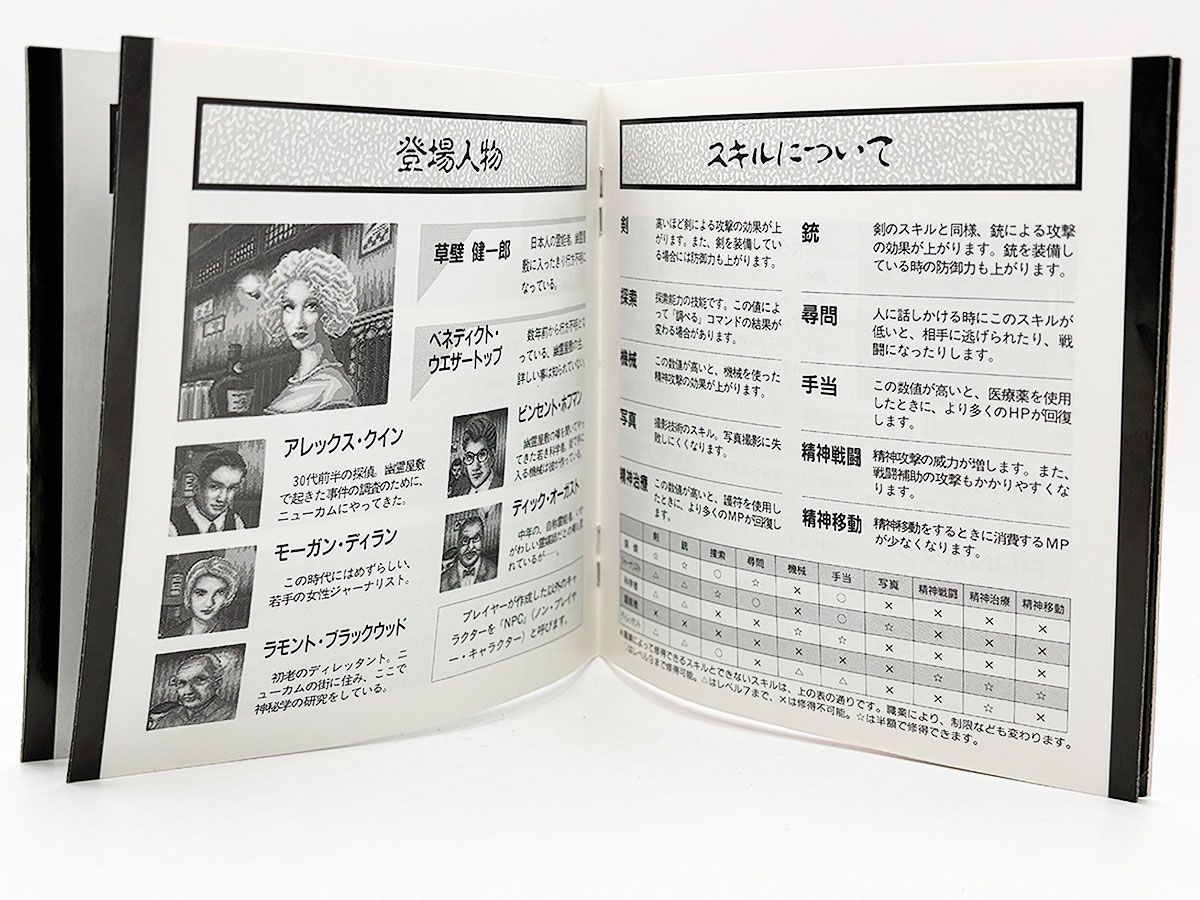 登場人物
草壁 健一郎
日本人の霊能者。幽霊屋
敷に入ったきり行方不明に
なっている。
ベネディクト・
ウエザートップ
数年前から行方不明とな
っている、幽霊屋敷の主。
詳しい事は知られていない。
アレックス・クイン
30代前半の探偵。幽霊屋敷
で起きた事件の調査のために、
ニューカムにやってきた。
モーガン・ディラン
この時代にはめずらしい、
若手の女性ジャーナリスト。
ラモント・ブラックウッド
初老のディレッタント。ニ
ューカムの街に住み、ここで
神秘学の研究をしている。
ビンセント・ホフマン
幽霊屋敷の噂を聞いてやっ
てきた若き科学者。
入る機械は彼が作っている。
ディック・オーガスト
中年の、自称霊能者。
がわしい霊媒師だとの噂も
れているが……。
プレイヤーが作成した以外のキャ
ラクターを「NPC」(ノン・プレイヤ
ー・キャラクター)と呼びます。
スキルについて
剣
高いほど剣による攻撃の効果が上
がります。また、剣を装備してい
る場合には防御力も上がります。
探索
探索能力の技能です。この値によ
って「調べる」コマンドの結果が
変わる場合があります。
機械
この数値が高いと、機械を使った
精神攻撃の効果が上がります。
写真
撮影技術のスキル。写真撮影に失
敗しにくくなります。
精神治療
この数値が高いと、護符を使用し
たときに、より多くのMPが回復し
ます。
銃
剣のスキルと同様、銃による攻撃
の効果が上がります。銃を装備し
ている時の防御力も上がります。
尋問
人に話しかける時にこのスキルが
低いと、相手に逃げられたり、戦
闘になったりします。
手当
この数値が高いと、医療薬を使用
したときに、より多くのHPが回復
します。
精神戦闘
精神攻撃の威力が増します。また、
戦闘補助の攻撃もかかりやすくな
ります。
精神移動
精神移動をするときに消費するMP
が少なくなります。
剣 銃 捜索 尋問 機械 手当 写真 精神戦闘 精神治療 精神移動
探偵 ☆ ☆ ○ ☆ × ○ × × × ×
ジャーナリスト △ △ ☆ ○ × ○ ☆ × × ×
科学者
霊能者
ディレッタント
※職業によって修得できるスキルとできないスキルは、上の表の通りです。職業により、制限なども変わります。
○はレベル9まで修得可能。△はレベル7まで、×は修得不可能。☆は半額で修得できます。